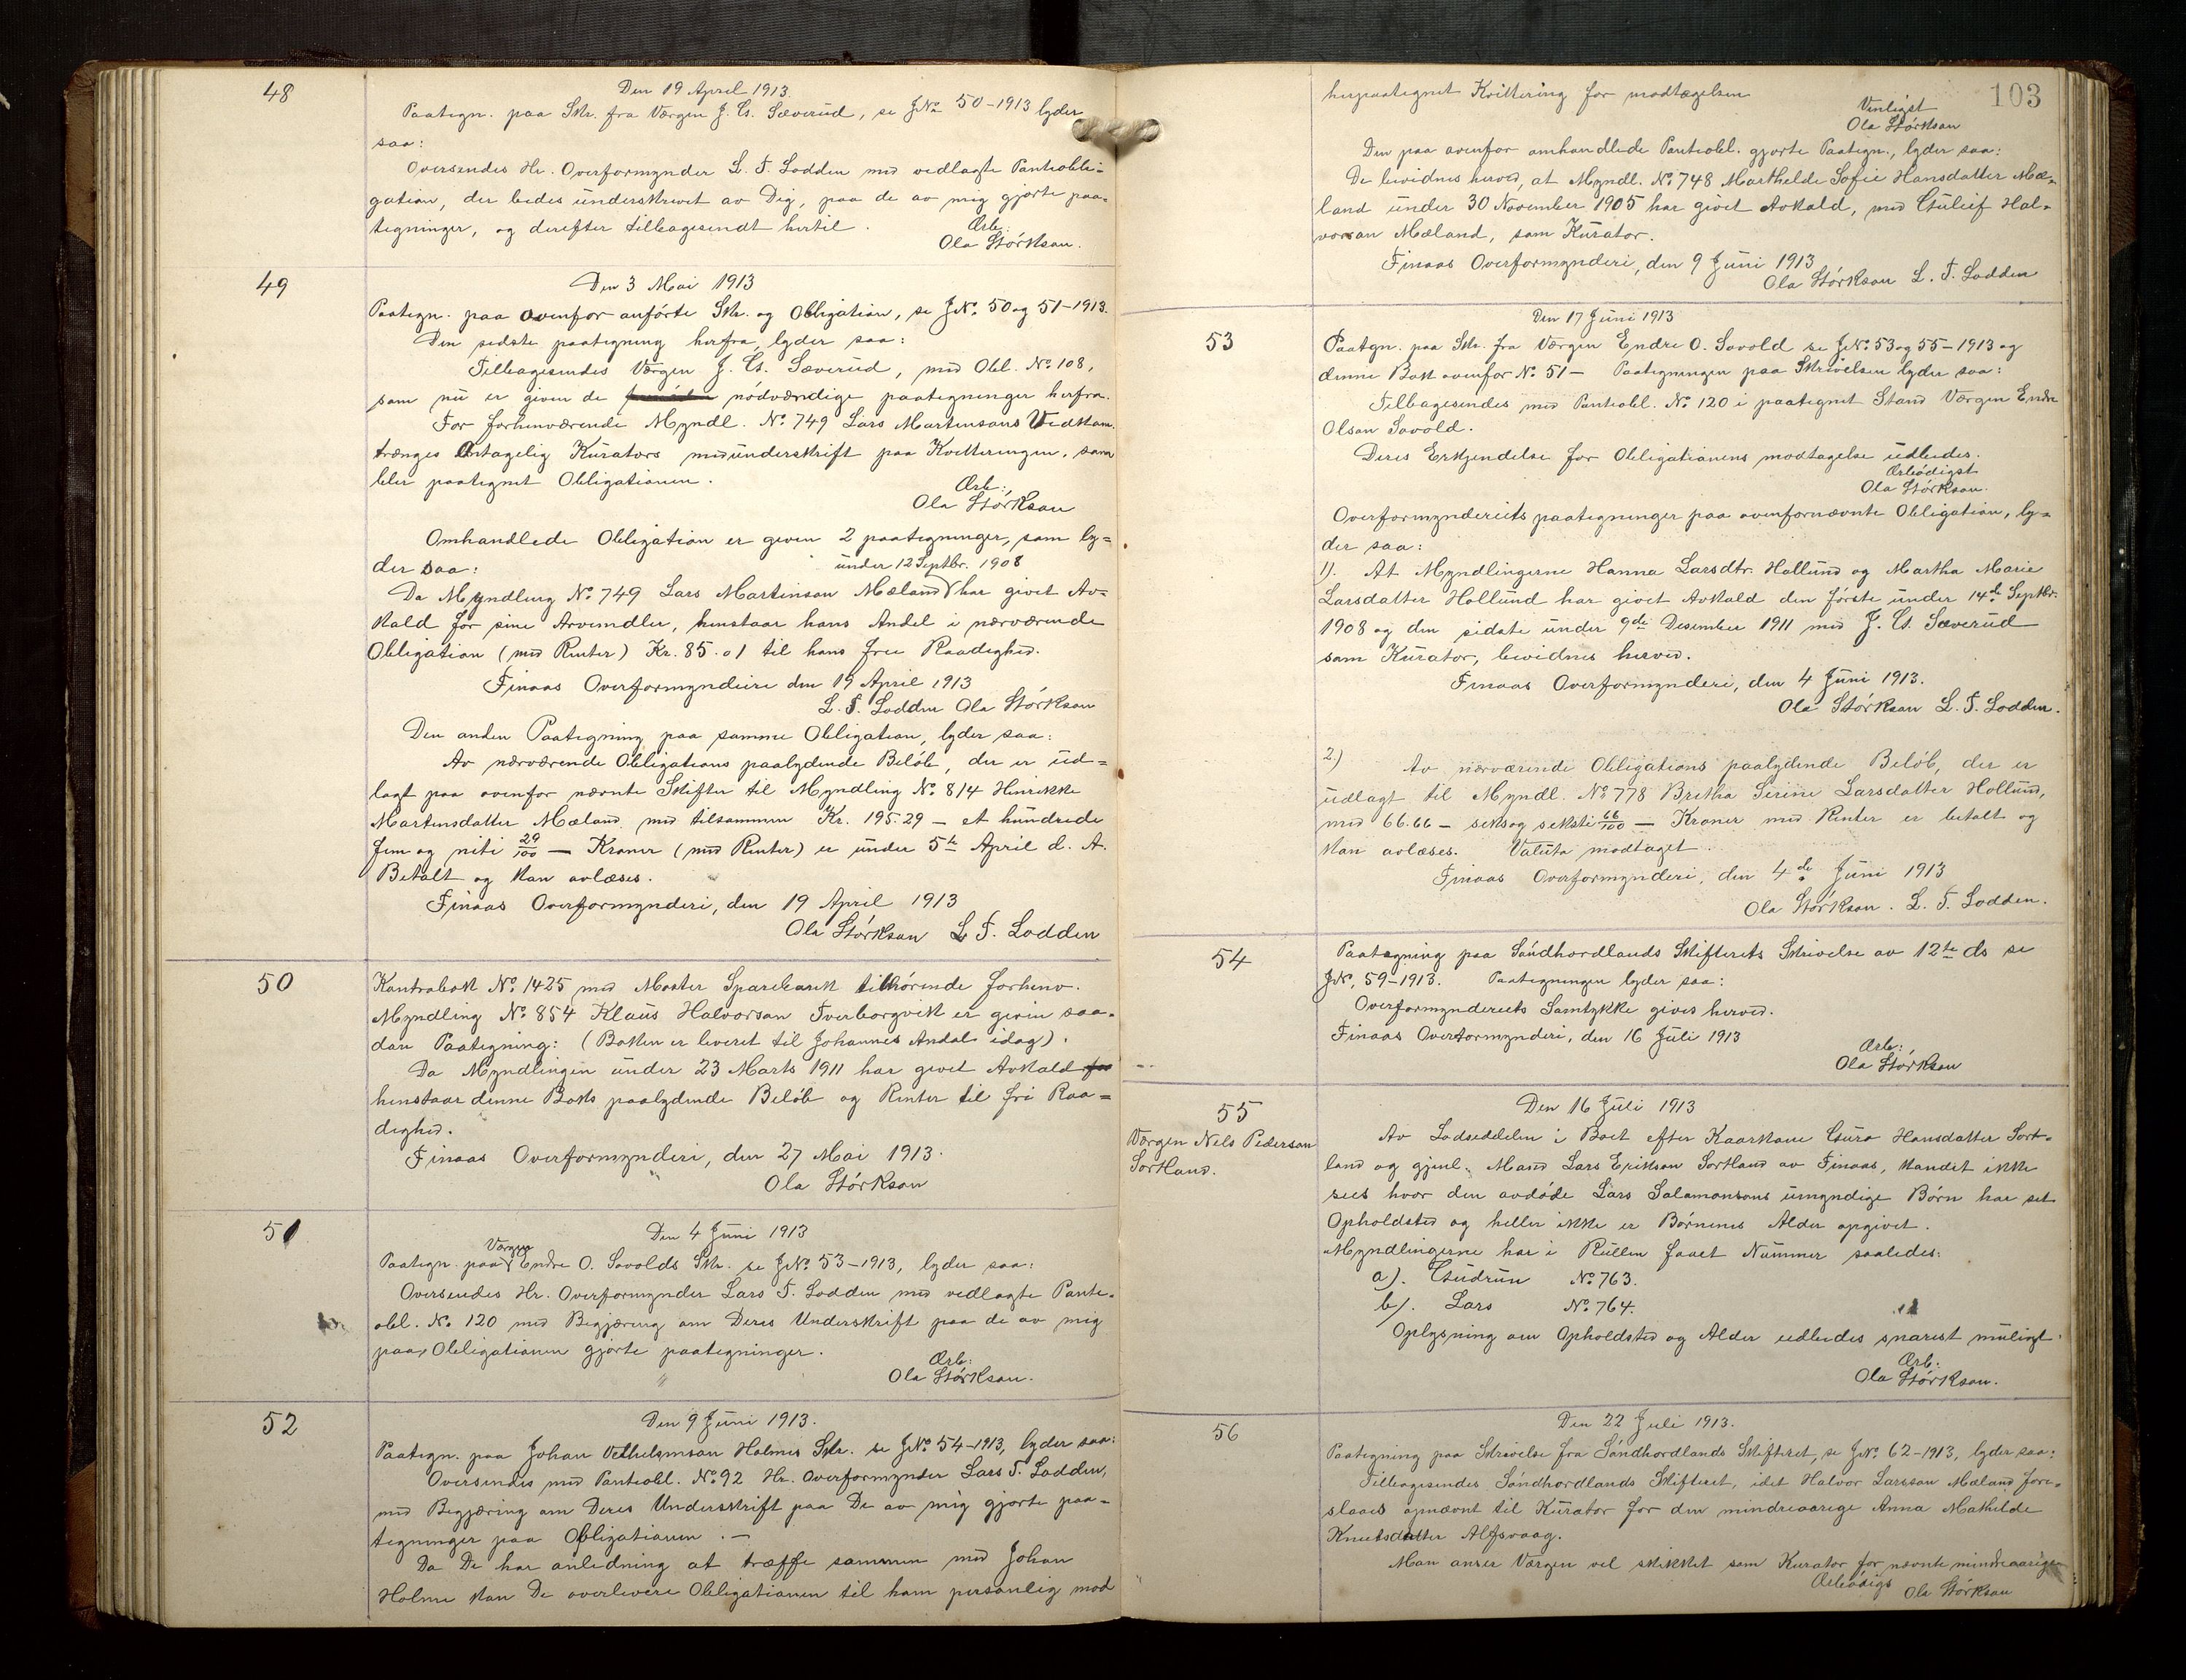 48
Den 19 April 1913.
Paategn. paa Skr. fra Værgen J. G. Sæverud, se JNo. 50-1913 lyder
saa:
Oversendes Hr. Overformynder L. T. Lodden med vedlagte Panteobli=
gation, der bedes underskrevet av Dig, paa de av mig gjorte paa=
tegninger, og derefter tilbagesendt hertil.
Ærb:
Ola Størkson.
49
Den 3 Mai 1913
Paategn. paa ovenfor anførte Skr. og Obligation, se JNo. 50 og 51-1913.
Den sidste paategning herfra, lyder saa:
Tilbagesendes Værgen J. G. Sæverud, med Obl. No. 108,
som nu er given de nødvændige paategninger herfra.
For forhenværende Myndl. No. 749 Lars Martinsons Vedkom.
trænges antagelig Kurators medunderskrift paa Kvitteringen, som
blir paategnet Obligationen.
Ærb:
Ola Størkson
Omhandlede Obligation er given 2 paategninger, som ly=
der saa:
under 12 Septbr. 1908
Da Myndling No. 749 Lars Martinson Mæland har givet Av=
kald for sine Arvemidler, henstaar hans Andel i nærværende
Obligation (med Renter) Kr. 85.01 til hans frie Raadighed.
Finaas Overformynderi den 19 April 1913
L. T. Lodden Ola Størkson
Den anden Paategning paa samme Obligation, lyder saa:
Av nærværende Obligations paalydende Beløb, der er ud=
lagt paa ovenfor nævnte Skifter til Myndling No. 814 Henrikke
Martinsdatter Mæland med tilsammen Kr. 195.29 - et hundrede
fem og niti 29/100 - Kroner (med Renter) er under 5te April d. A.
Betalt og kan avlæses.
Finaas Overformynderi, den 19 April 1913
Ola Størkson L T. Lodden
50
Kontrabok No. 1425 med Moster Sparebank tilhørende forhenv.
Myndling No. 854 Klaus Halvorson Tverborgvik er given saa=
dan Paategning: (Boken er leveret til Johannes Andal idag).
Da Myndlingen under 23 Marts 1911 har givet Avkald for
henstaar denne Boks paalydende Beløb og Renter til fri Raa=
dighed.
Finaas Overformynderi, den 27 Mai 1913.
Ola Størkson
51
Den 4 Juni 1913
Værgen
Paategn. paa Endre O. Sovolds Skr. se JNo. 53-1913, lyder saa:
Oversendes Hr. Overformynder Lars T. Lodden med vedlagte Pante=
obl. No. 120 med Begjæring om Deres Underskrift paa de av mig
paa Obligationen gjorte paategninger.
Ærb:
Ola Størkson.
52
Den 9 Juni 1913.
Paategn. paa Johan Vilhelmson Holmes Skr. se JNo. 54-1913, lyder saa:
Oversendes med Panteobl. No. 92 Hr. Overformynder Lars T. Lodden,
med Begjæring om Deres Underskrift paa De av mig gjorte paa=
tegninger paa Obligationen. -
Da De har anledning at træffe sammen med Johan
Holme kan De overlevere Obligationen til ham personlig mod
103
herpaategnet Kvittering for modtagelsen
Venligst
Ola Størkson
Den paa ovenfor omhandlede Panteobl. gjorte Paategn., lyder saa:
De bevidnes herved, at Myndl. No. 748 Marthelde Sofie Hansdatter Mæ=
land under 30 November 1905 har givet Avkald, med Guleif Hal=
vorson Mæland, som Kurator.
Finaas Overformynderi, den 9 Juni 1913
Ola Størkson L. T. Lodden
53
Den 17 Juni 1913
Paategn. paa Skr. fra Værgen Endre O. Sovold se JNo. 53 og 55-1913 og
denne Bok ovenfor No. 51 - Paategningen paa Skrivelsen lyder saa:
Tilbagesendes med Panteobl. No. 120 i paategnet Stand Værgen Endre
Olson Sovold.
Deres Erkjendelse for Obligationens modtagelse udbedes.
Ærbødigst
Ola Størkson.
Overformynderiets paategninger paa ovenfornævnte Obligation, ly=
der saa:
1). At Myndlingerne Hanna Larsdtr. Hollund og Martha Marie
Larsdatter Hollund har givet Avkald den første under 14de Septbr.
1908 og den sidste under 9de Desember 1911 med J. G. Sæverud
som Kurator, bevidnes herved.
Finaas Overformynderi, den 4 Juni 1913.
Ola Størkson L. T. Lodden.
2)
Av nærværende Obligations paalydende Beløb, der er
udlagt til Myndl. No. 778 Bretha Serine Larsdatter Hollund,
med 66.66 - seksog seksti 66/100 - Kroner med Renter er betalt og
kan avlæses. Valuta modtaget.
Finaas Overformynderi, den 4de Juni 1913
Ola Størkson. L. T. Lodden.
54
Paategning paa Søndhordlands Skifterets Skrivelse av 12te ds se
JNo. 59-1913. Paategningen lyder saa:
Overformynderiets Samtykke gives herved.
Finaas Overformynderi, den 16 Juli 1913
Ærb:
Ola Størkson
55
Værgen Nels Pederson
Sortland.
Den 16 Juli 1913
Av Lodseddelen i Boet efter Kaarkone Guro Hansdatter Sort=
land og gjenl. Mand Lars Erikson Sortland av Finaas, kandet ikke
sees hvor den avdøde Lars Salamonsons umyndige Børn har set
Opholdsted og heller ikke er Børnenes Alder opgivet.
Myndlingerne har i Rullen faaet Nummer saaledes:
a). Gudrun No. 763.
b). Lars No. 764.
Oplysning om Opholdsted og Alder udbedes snarest muligt.
Ærb:
Ola Størkson.
56
Den 22 Juli 1913.
Paategning paa Skrivelse fra Søndhordlands Skifteret, se JNo. 62-1913, lyder saa:
Tilbagesendes Søndhordlands Skifteret, idet Halvor Larsson Mæland fore=
slaaes opnævnt til Kurator for den mindreaarige Anna Mathilde
Knutsdatter Alfsvaag.
Man anser Værgen vel skikket som Kurator for nævnte mindreaarige
Ærbødigs
Ola Størkson